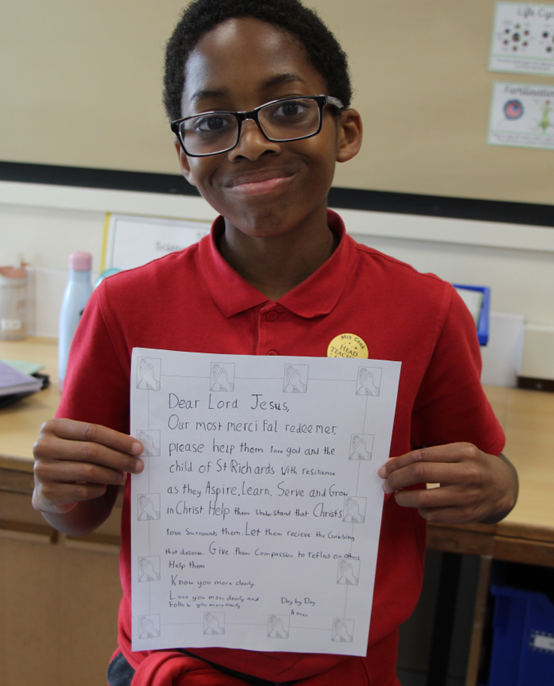 Life Cyc
Fertilisation
Scien
Mrs Cook
HEAD
TEACHE
Dear Lord Jesus,
Our most merci ful redeemer,
please help them love god and the
child of St Richards with resilience
as they Aspire, Learn, Serve and Grow
in Christ. Help them Understand that Christs
love Surrounds them. Let them recieve the
that deserve. Give them Compassion to reflect on others
Help them
Know you more clearly.
Love you more dearly and
Follow you more nearly
Day by Day
Amen